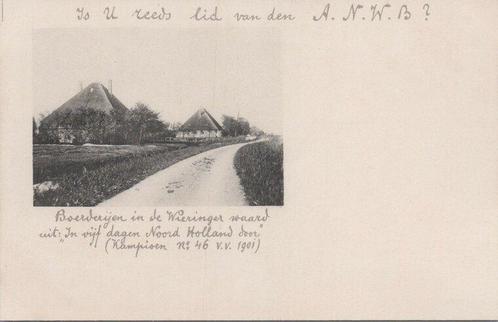 Is U reeds lid van den A.N.W.B?
Boerderijen in de Wieringer waard
uit: "In vijf dagen Noord Holland door"
(Kampioen No 46 v.v. 1901)